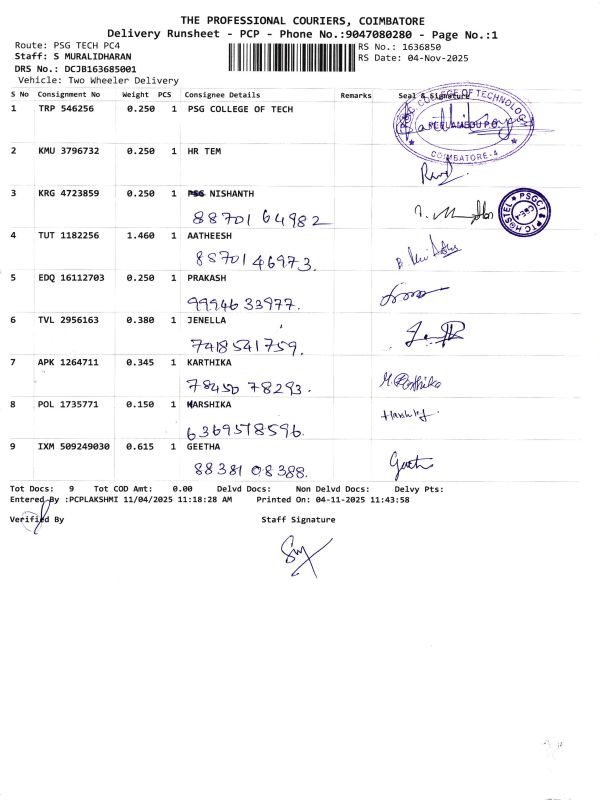 THE PROFESSIONAL COURIERS, COIMBATORE
Delivery Runsheet - PCP - Phone No.:9047080280 - Page No.:1
Route: PSG TECH PC4 RS No.: 1636850
Staff: S MURALIDHARAN RS Date: 04-Nov-2025
DRS No.: DCJB163685001
Vehicle: Two Wheeler Delivery
S No Consignment No Weight PCS Consignee Details Remarks Seal & Signature
1 TRP 546256 0.250 1 PSG COLLEGE OF TECH
PSG COLLEGE OF TECHNOLOGY
PEELAMEDU P.O
COIMBATORE-4
2 KMU 3796732 0.250 1 HR TEM
3 KRG 4723859 0.250 1 PSG NISHANTH
88701 64982
PSGCT & PTC HOSTEL
CBE-4
4 TUT 1182256 1.460 1 AATHEESH
8870146973.
5 EDQ 16112703 0.250 1 PRAKASH
99946 33977.
6 TVL 2956163 0.380 1 JENELLA
7418541759.
7 APK 1264711 0.345 1 KARTHIKA
78450 78293. M. Karthika
8 POL 1735771 0.150 1 HARSHIKA
6369578596.
9 IXM 509249030 0.615 1 GEETHA
88381 08388. Geetha
Tot Docs: 9 Tot COD Amt: 0.00 Delvd Docs: Non Delvd Docs: Delvy Pts:
Entered By :PCPLAKSHMI 11/04/2025 11:18:28 AM Printed On: 04-11-2025 11:43:58
Verified By Staff Signature